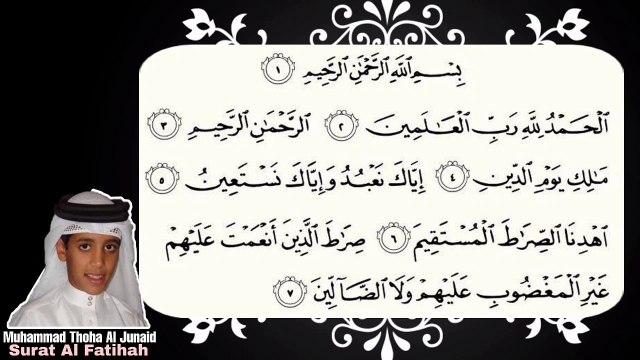 بِسْمِ اللَّهِ الرَّحْمَٰنِ الرَّحِيمِ ١
الْحَمْدُ لِلَّهِ رَبِّ الْعَالَمِينَ ٢ الرَّحْمَٰنِ الرَّحِيمِ ٣
مَالِكِ يَوْمِ الدِّينِ ٤ إِيَّاكَ نَعْبُدُ وَإِيَّاكَ نَسْتَعِينُ ٥
اهْدِنَا الصِّرَاطَ الْمُسْتَقِيمَ ٦ صِرَاطَ الَّذِينَ أَنْعَمْتَ عَلَيْهِمْ
غَيْرِ الْمَغْضُوبِ عَلَيْهِمْ وَلَا الضَّالِّينَ ٧
Muhammad Thoha Al Junaid
Surat Al Fatihah